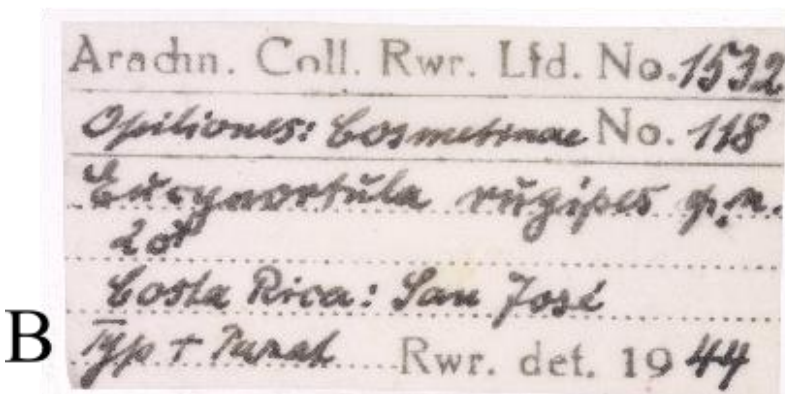 Arachn. Coll. Rwr. Lfd. No. 1532
Opiliones: Cosmetinae No. 118
Eucynortula rugipes
2♂
Costa Rica: San José
B Typ + Parat Rwr. det. 1944